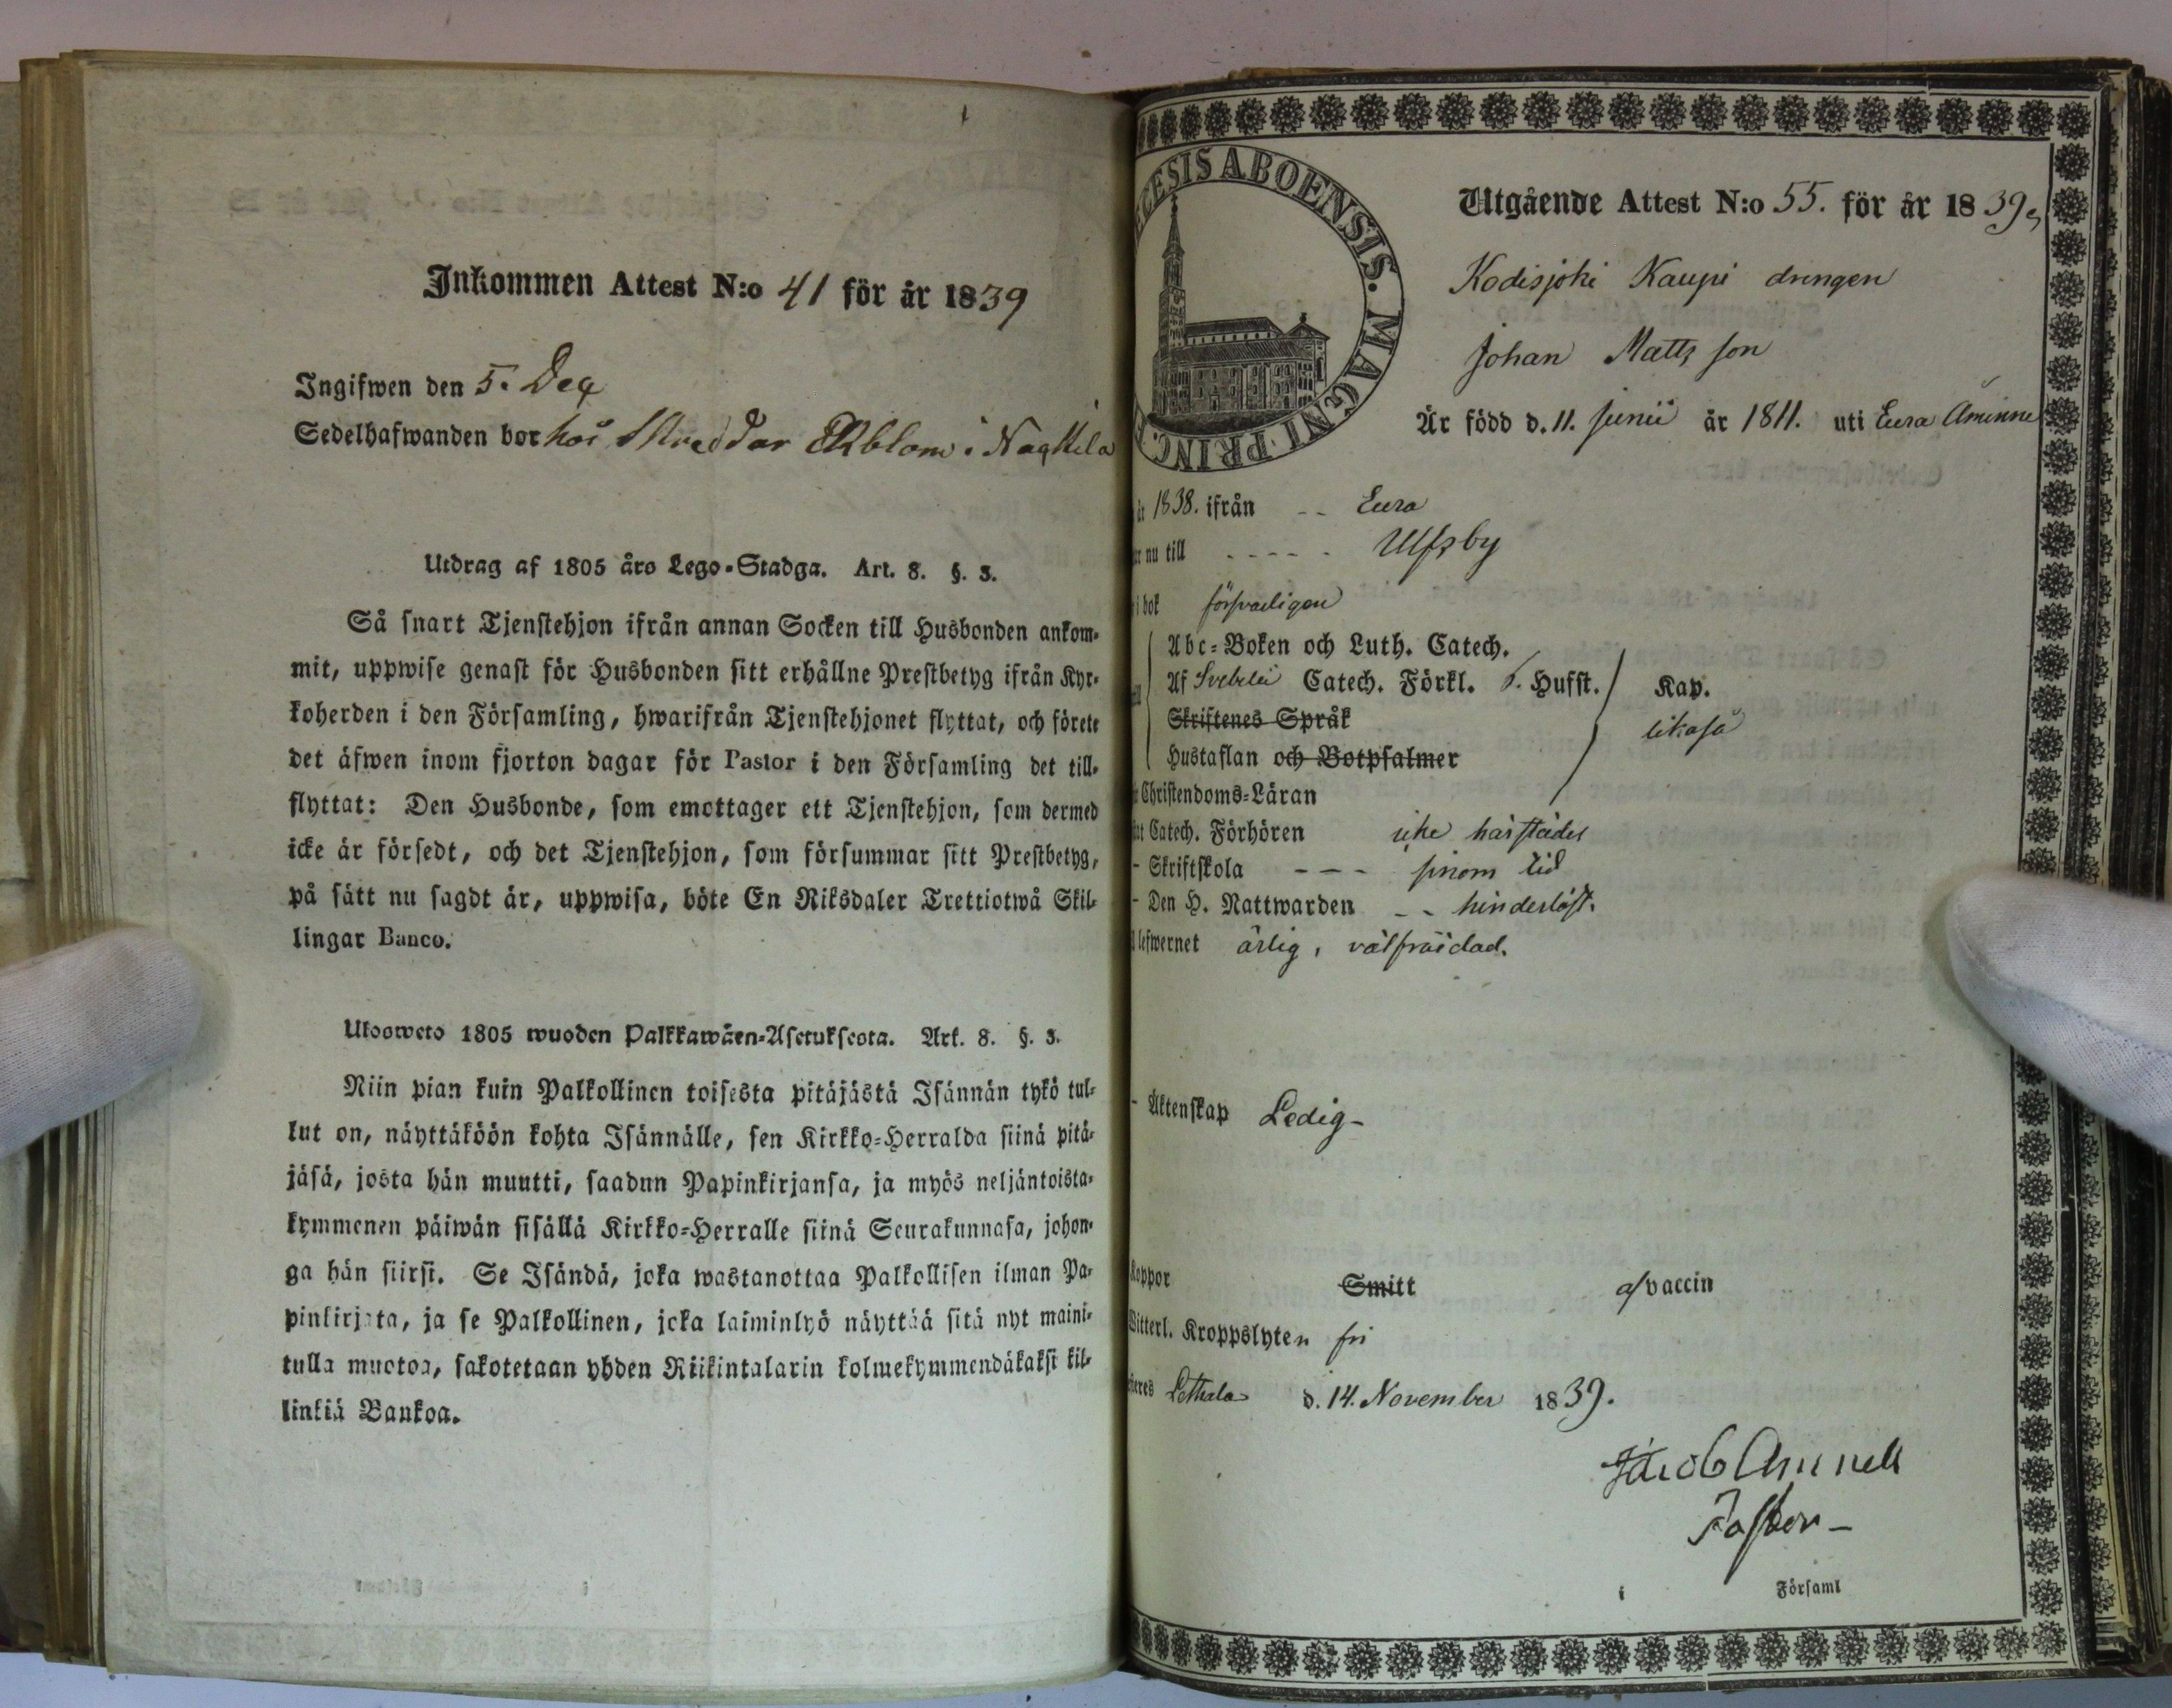 Inkommen Attest N:o 41 för år 1839
Ingifwen den 5. Dec
Sedelhafwanden bor hos Skreddar Ekblom i Nackila
Utdrag af 1805 års Lego-Stadga. Art. 8. §. 3.
Så snart Tjenstehjon ifrån annan Socken till Husbonden ankom-
mit, uppwise genast för Husbonden sitt erhållne Prestbetyg ifrån Kyr-
koherden i den Församling, hwarifrån Tjenstehjonet flyttat, och förete
det äfwen inom fjorton dagar för Pastor i den Församling det till-
flyttat: Den Husbonde, som emottager ett Tjenstehjon, som dermed
icke är försedt, och det Tjenstehjon, som försummar sitt Prestbetyg,
på sätt nu sagdt är, uppwisa, böte En Riksdaler Trettiotwå Skil-
lingar Banco.
Ulosweto 1805 wuoden Palkkawäen-Asetuksesta. Art. 8. §. 3.
Niin pian kuin Palkollinen toisesta pitäjästä Isännän tykö tul-
lut on, näyttäköön kohta Isännälle, sen Kirkko-Herralda siinä pitä-
jäsä, josta hän muutti, saadun Papinkirjansa, ja myös neljäntoista-
kymmenen päiwän sisällä Kirkko-Herralle siinä Seurakunnasa, johon-
ga hän siirsi. Se Isändä, joka wastanottaa Palkollisen ilman Pa-
pinkirjata, ja se Palkollinen, joka laiminlyö näyttää sitä nyt maini-
tulla muotoa, sakotetaan yhden Riikintalarin kolmekymmendäkaksi kil-
linkiä Bankoa.
CESIS ABOENSIS. MAGNI PRINC.
Utgående Attest N:o 55. för år 1839
Kodisjoki Kaupi drengen
Johan Mattsson
Är född d. 11. Junii år 1811. uti Eura Åminne
år 1838. ifrån -- Eura
nu till ----- Ulfsby
i bok försvarligen
Abc-Boken och Luth. Catech.
Af Svebelii Catech. Förkl. Hufst. Kap.
Skriftenes Språk likaså
Hustaflan och Botpsalmer
Christendoms-Läran
Catech. Förhören icke härstädes
- Skriftskola --- sinom tid
- Den H. Nattwarden -- hinderlöst.
lefwernet ärlig, välfräjdad.
- Äktenskap Ledig -
Koppor Smitt af vaccin
Witterl. Kroppslyten fri
Letala d. 14. November 1839.
Jacob Chunell
Pastor -
i Församl